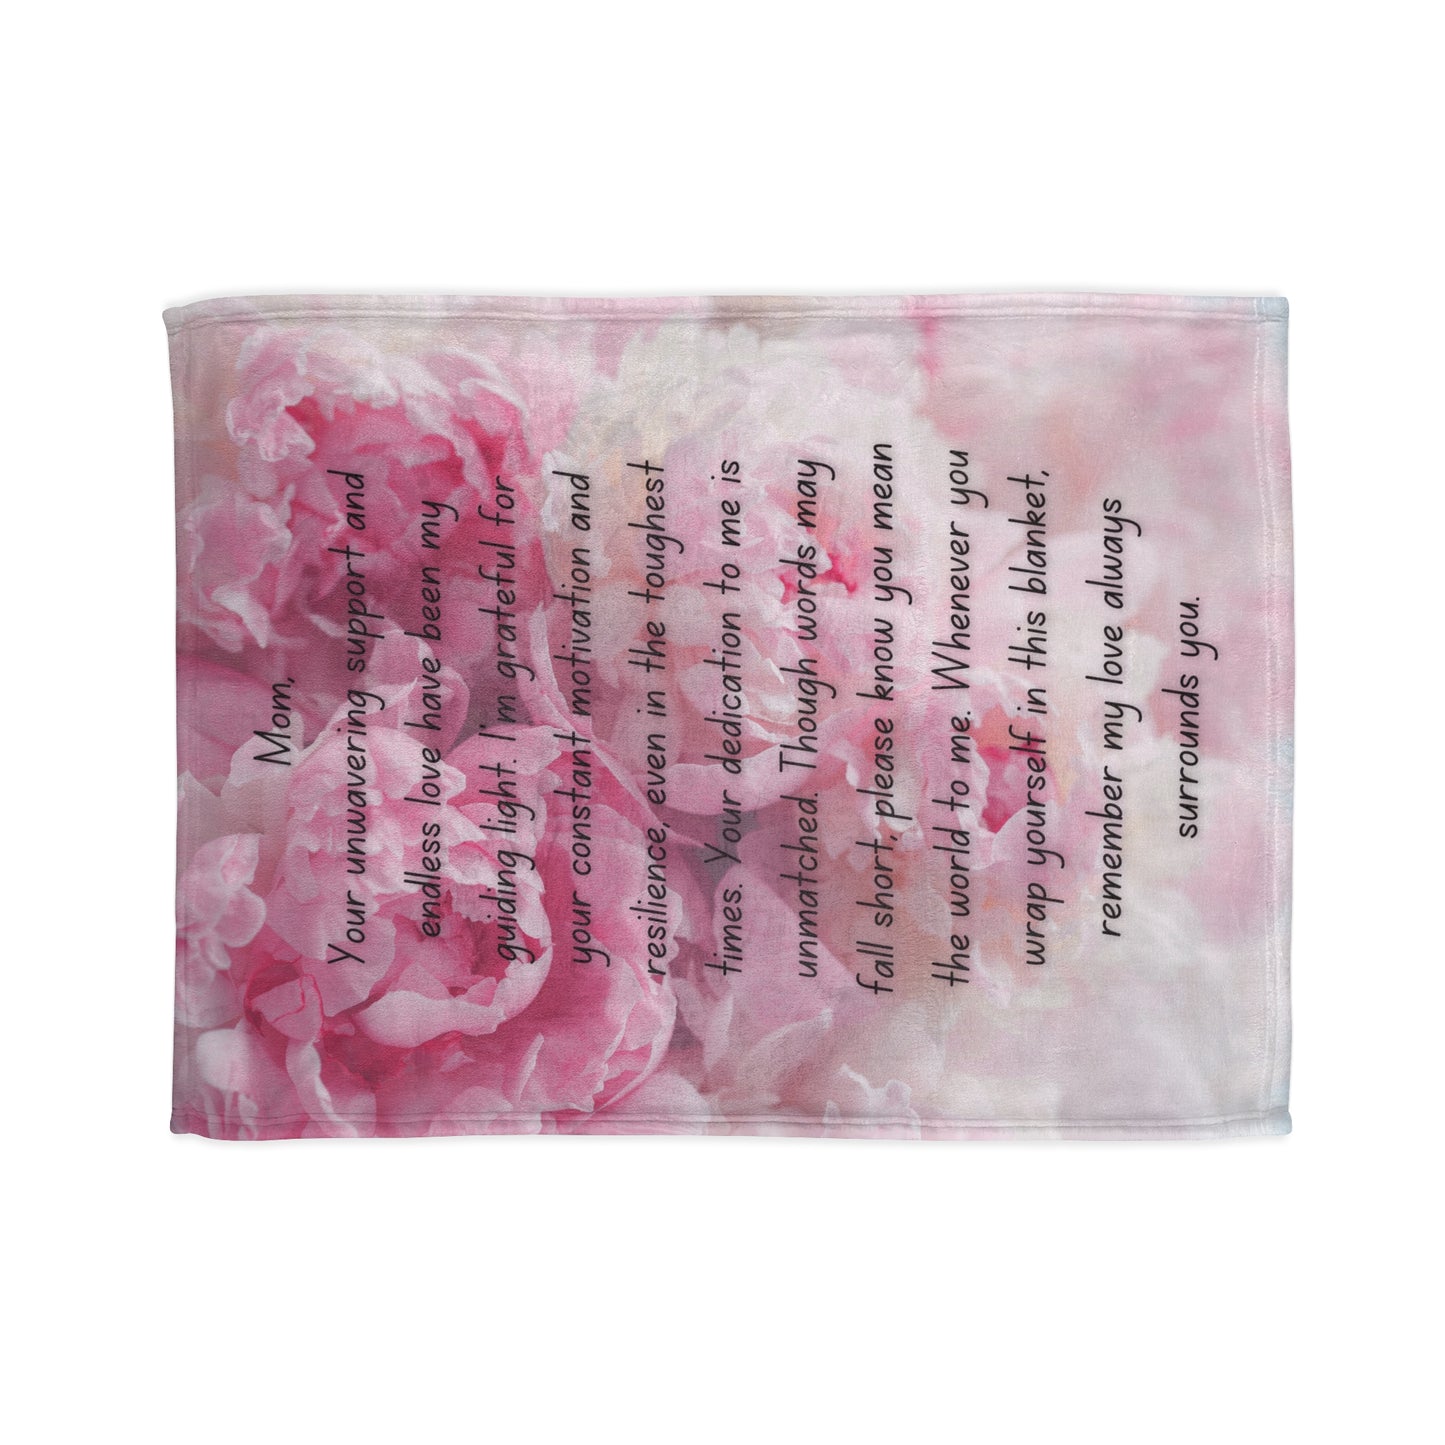 Mom,
Your unwavering support and
endless love have been my
guiding light. I'm grateful for
your constant motivation and
resilience, even in the toughest
times. Your dedication to me is
unmatched. Though words may
fall short, please know you mean
the world to me. Whenever you
wrap yourself in this blanket,
remember my love always
surrounds you.